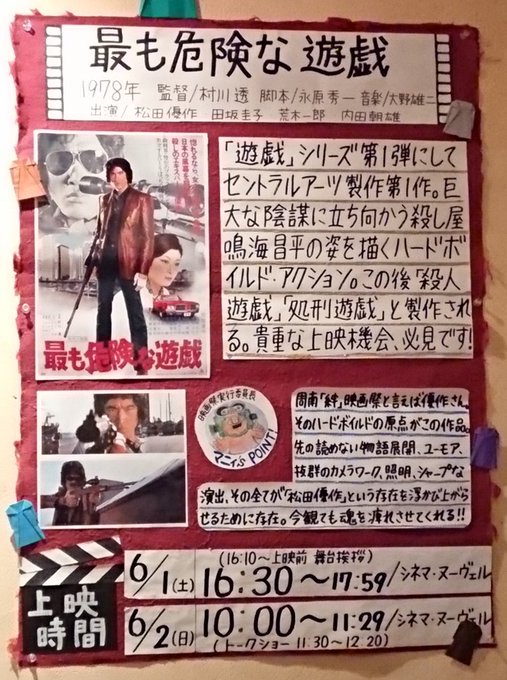 最も危険な遊戯
1978年 監督/村川透 脚本/永原秀一 音楽/大野雄二
出演/ 松田優作 田坂圭子 荒木一郎 内田朝雄
「遊戯」シリーズ第1弾にして
セントラルアーツ製作第1作。巨
大な陰謀に立ち向かう殺し屋
鳴海昌平の姿を描くハードボ
イルド・アクション。この後「殺人
遊戯」「処刑遊戯」と製作され
る。貴重な上映機会、必見です!
惚れるなら、女
日本の黒幕を
殺しのエキス
最も危険な遊戯
映画祭実行委員長
マニィ's POINT!
周南「絆」映画祭と言えば優作さん。
そのハードボイルドの原点がこの作品。
先の読めない物語展開、ユーモア、
抜群のカメラワーク、照明、シャープな
演出、その全てが「松田優作」という存在を浮かび上がら
せるために存在。今観ても魂を痺れさせてくれる!!
上映
時間
(16:10〜上映前 舞台挨拶)
6/1(土) 16:30〜17:59/シネマ・ヌーヴェル
6/2(日) 10:00〜11:29/シネマ・ヌーヴェル
(トークショー 11:30〜12:20)